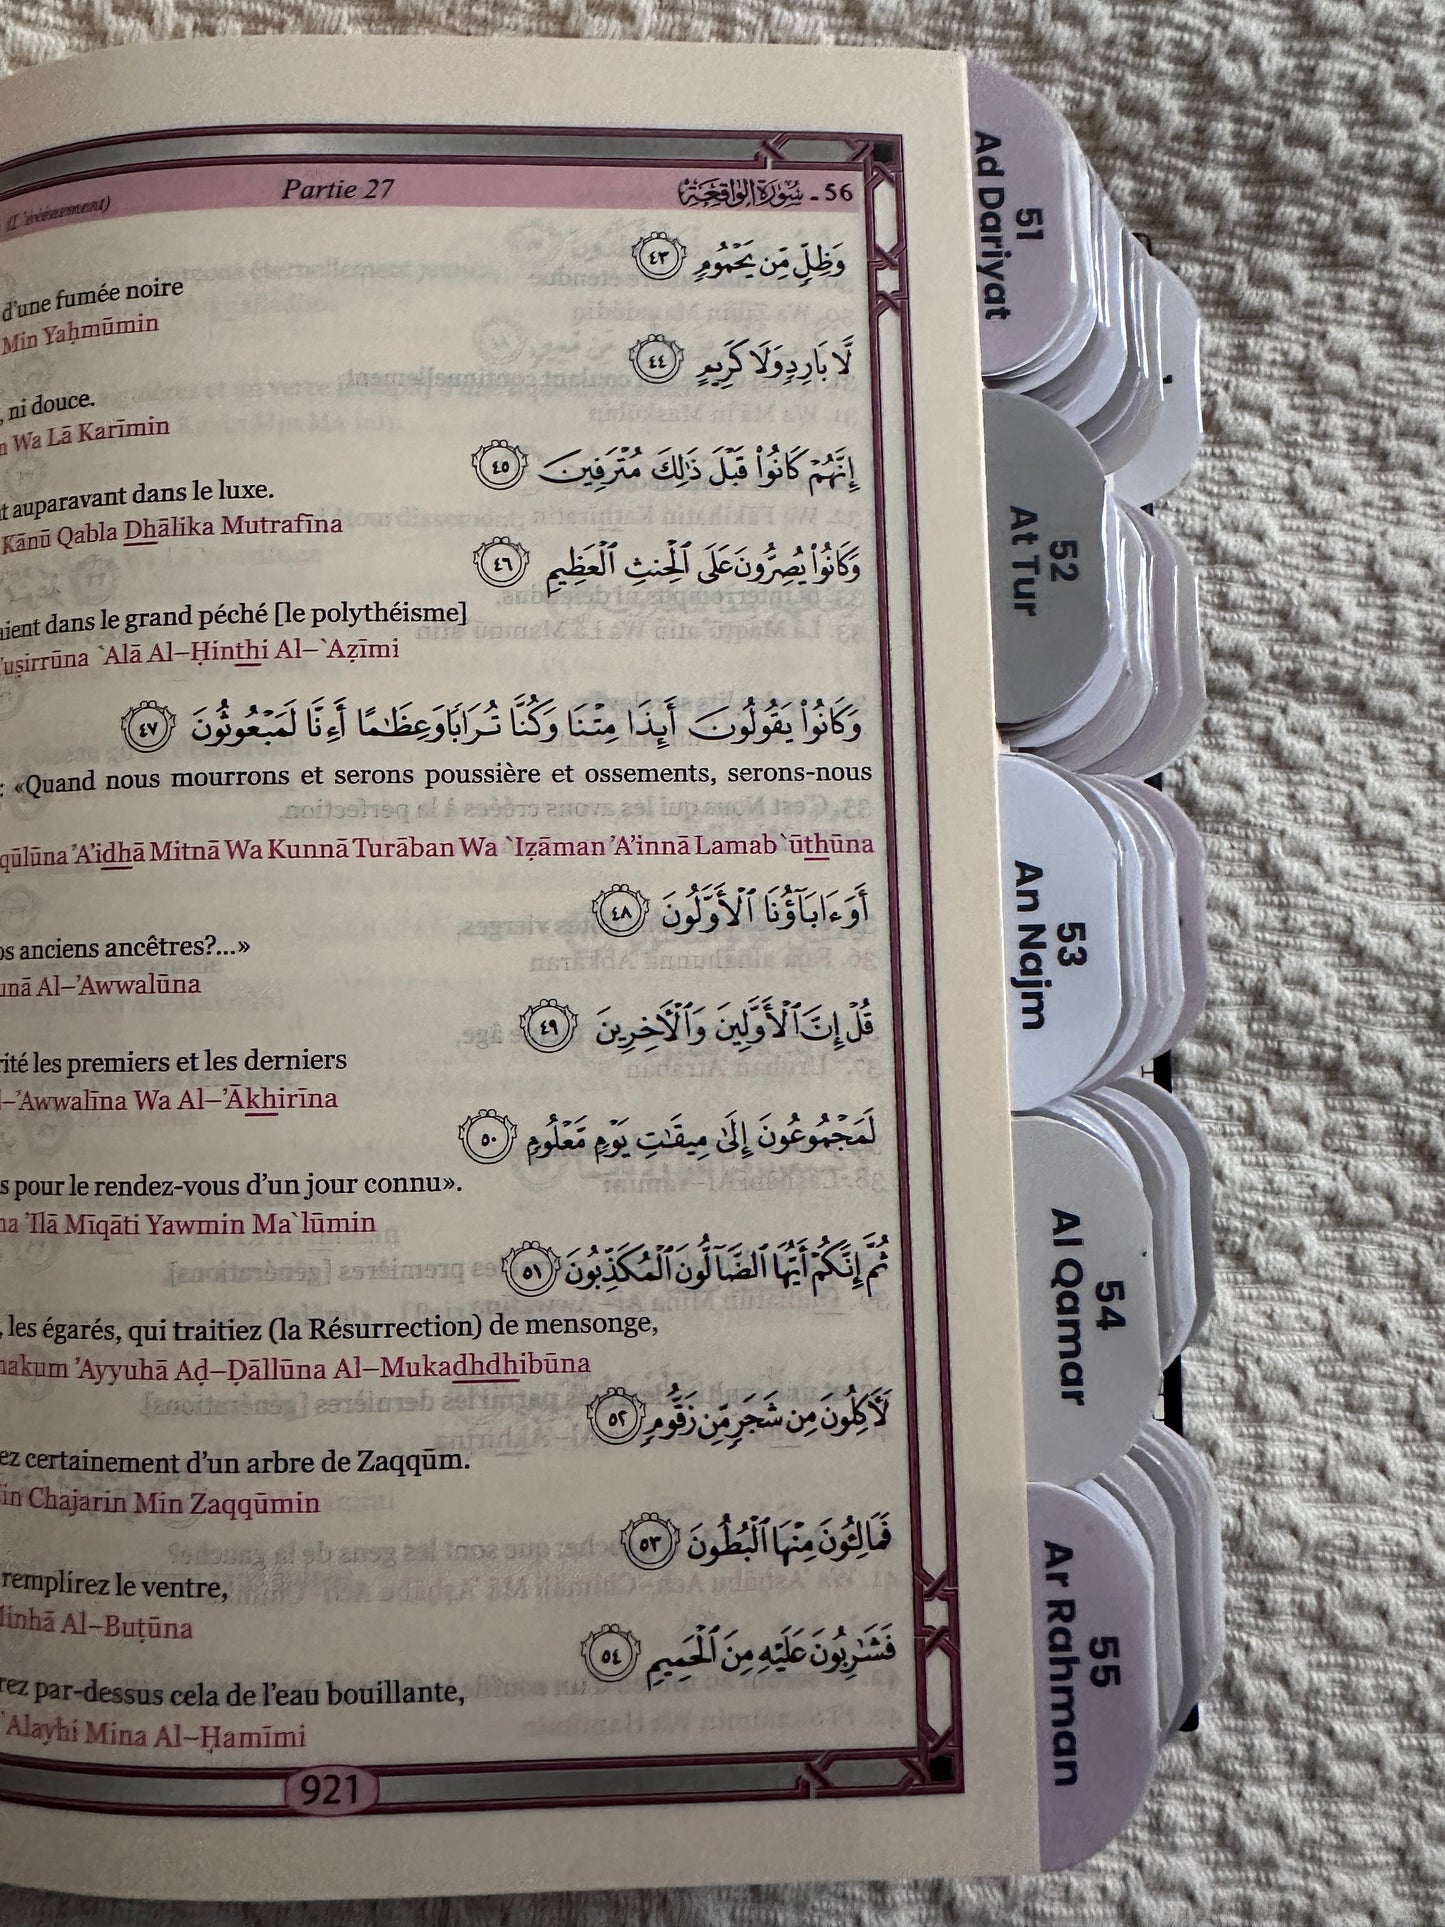 (L'événement)
Partie 27
56 - سُورَةُ الوَاقِعَةِ
وَظِلٍّ مِّن يَحْمُومٍ ٤٣
d'une fumée noire
Min Yaḥmūmin
لَّا بَارِدٍ وَلَا كَرِيمٍ ٤٤
, ni douce.
Wa Lā Karīmin
إِنَّهُمْ كَانُوا۟ قَبْلَ ذَٰلِكَ مُتْرَفِينَ ٤٥
auparavant dans le luxe.
Kānū Qabla Dhālika Mutrafīna
وَكَانُوا۟ يُصِرُّونَ عَلَى ٱلْحِنثِ ٱلْعَظِيمِ ٤٦
aient dans le grand péché [le polythéisme]
uṣirrūna `Alā Al–Ḥinthi Al–`Aẓīmi
وَكَانُوا۟ يَقُولُونَ أَئِذَا مِتْنَا وَكُنَّا تُرَابًا وَعِظَٰمًا أَءِنَّا لَمَبْعُوثُونَ ٤٧
: «Quand nous mourrons et serons poussière et ossements, serons-nous
qūlūna 'A'idhā Mitnā Wa Kunnā Turāban Wa `Iẓāman 'A'innā Lamab`ūthūna
أَوَءَابَآؤُنَا ٱلْأَوَّلُونَ ٤٨
os anciens ancêtres?...»
unā Al–'Awwalūna
قُلْ إِنَّ ٱلْأَوَّلِينَ وَٱلْءَاخِرِينَ ٤٩
rité les premiers et les derniers
l–'Awwalīna Wa Al–'Ākhirīna
لَمَجْمُوعُونَ إِلَىٰ مِيقَٰتِ يَوْمٍ مَّعْلُومٍ ٥٠
s pour le rendez-vous d'un jour connu».
na 'Ilā Mīqāti Yawmin Ma`lūmin
ثُمَّ إِنَّكُمْ أَيُّهَا ٱلضَّآلُّونَ ٱلْمُكَذِّبُونَ ٥١
, les égarés, qui traitiez (la Résurrection) de mensonge,
nakum 'Ayyuhā Aḍ–Ḍāllūna Al–Mukadhdhibūna
لَءَاكِلُونَ مِن شَجَرٍ مِّن زَقُّومٍ ٥٢
ez certainement d'un arbre de Zaqqūm.
in Chajarin Min Zaqqūmin
فَمَالِـُٔونَ مِنْهَا ٱلْبُطُونَ ٥٣
remplirez le ventre,
Minhā Al–Buṭūna
فَشَٰرِبُونَ عَلَيْهِ مِنَ ٱلْحَمِيمِ ٥٤
rez par-dessus cela de l'eau bouillante,
`Alayhi Mina Al–Ḥamīmi
921
51
Ad Dariyat
52
At Tur
53
An Najm
54
Al Qamar
55
Ar Rahman